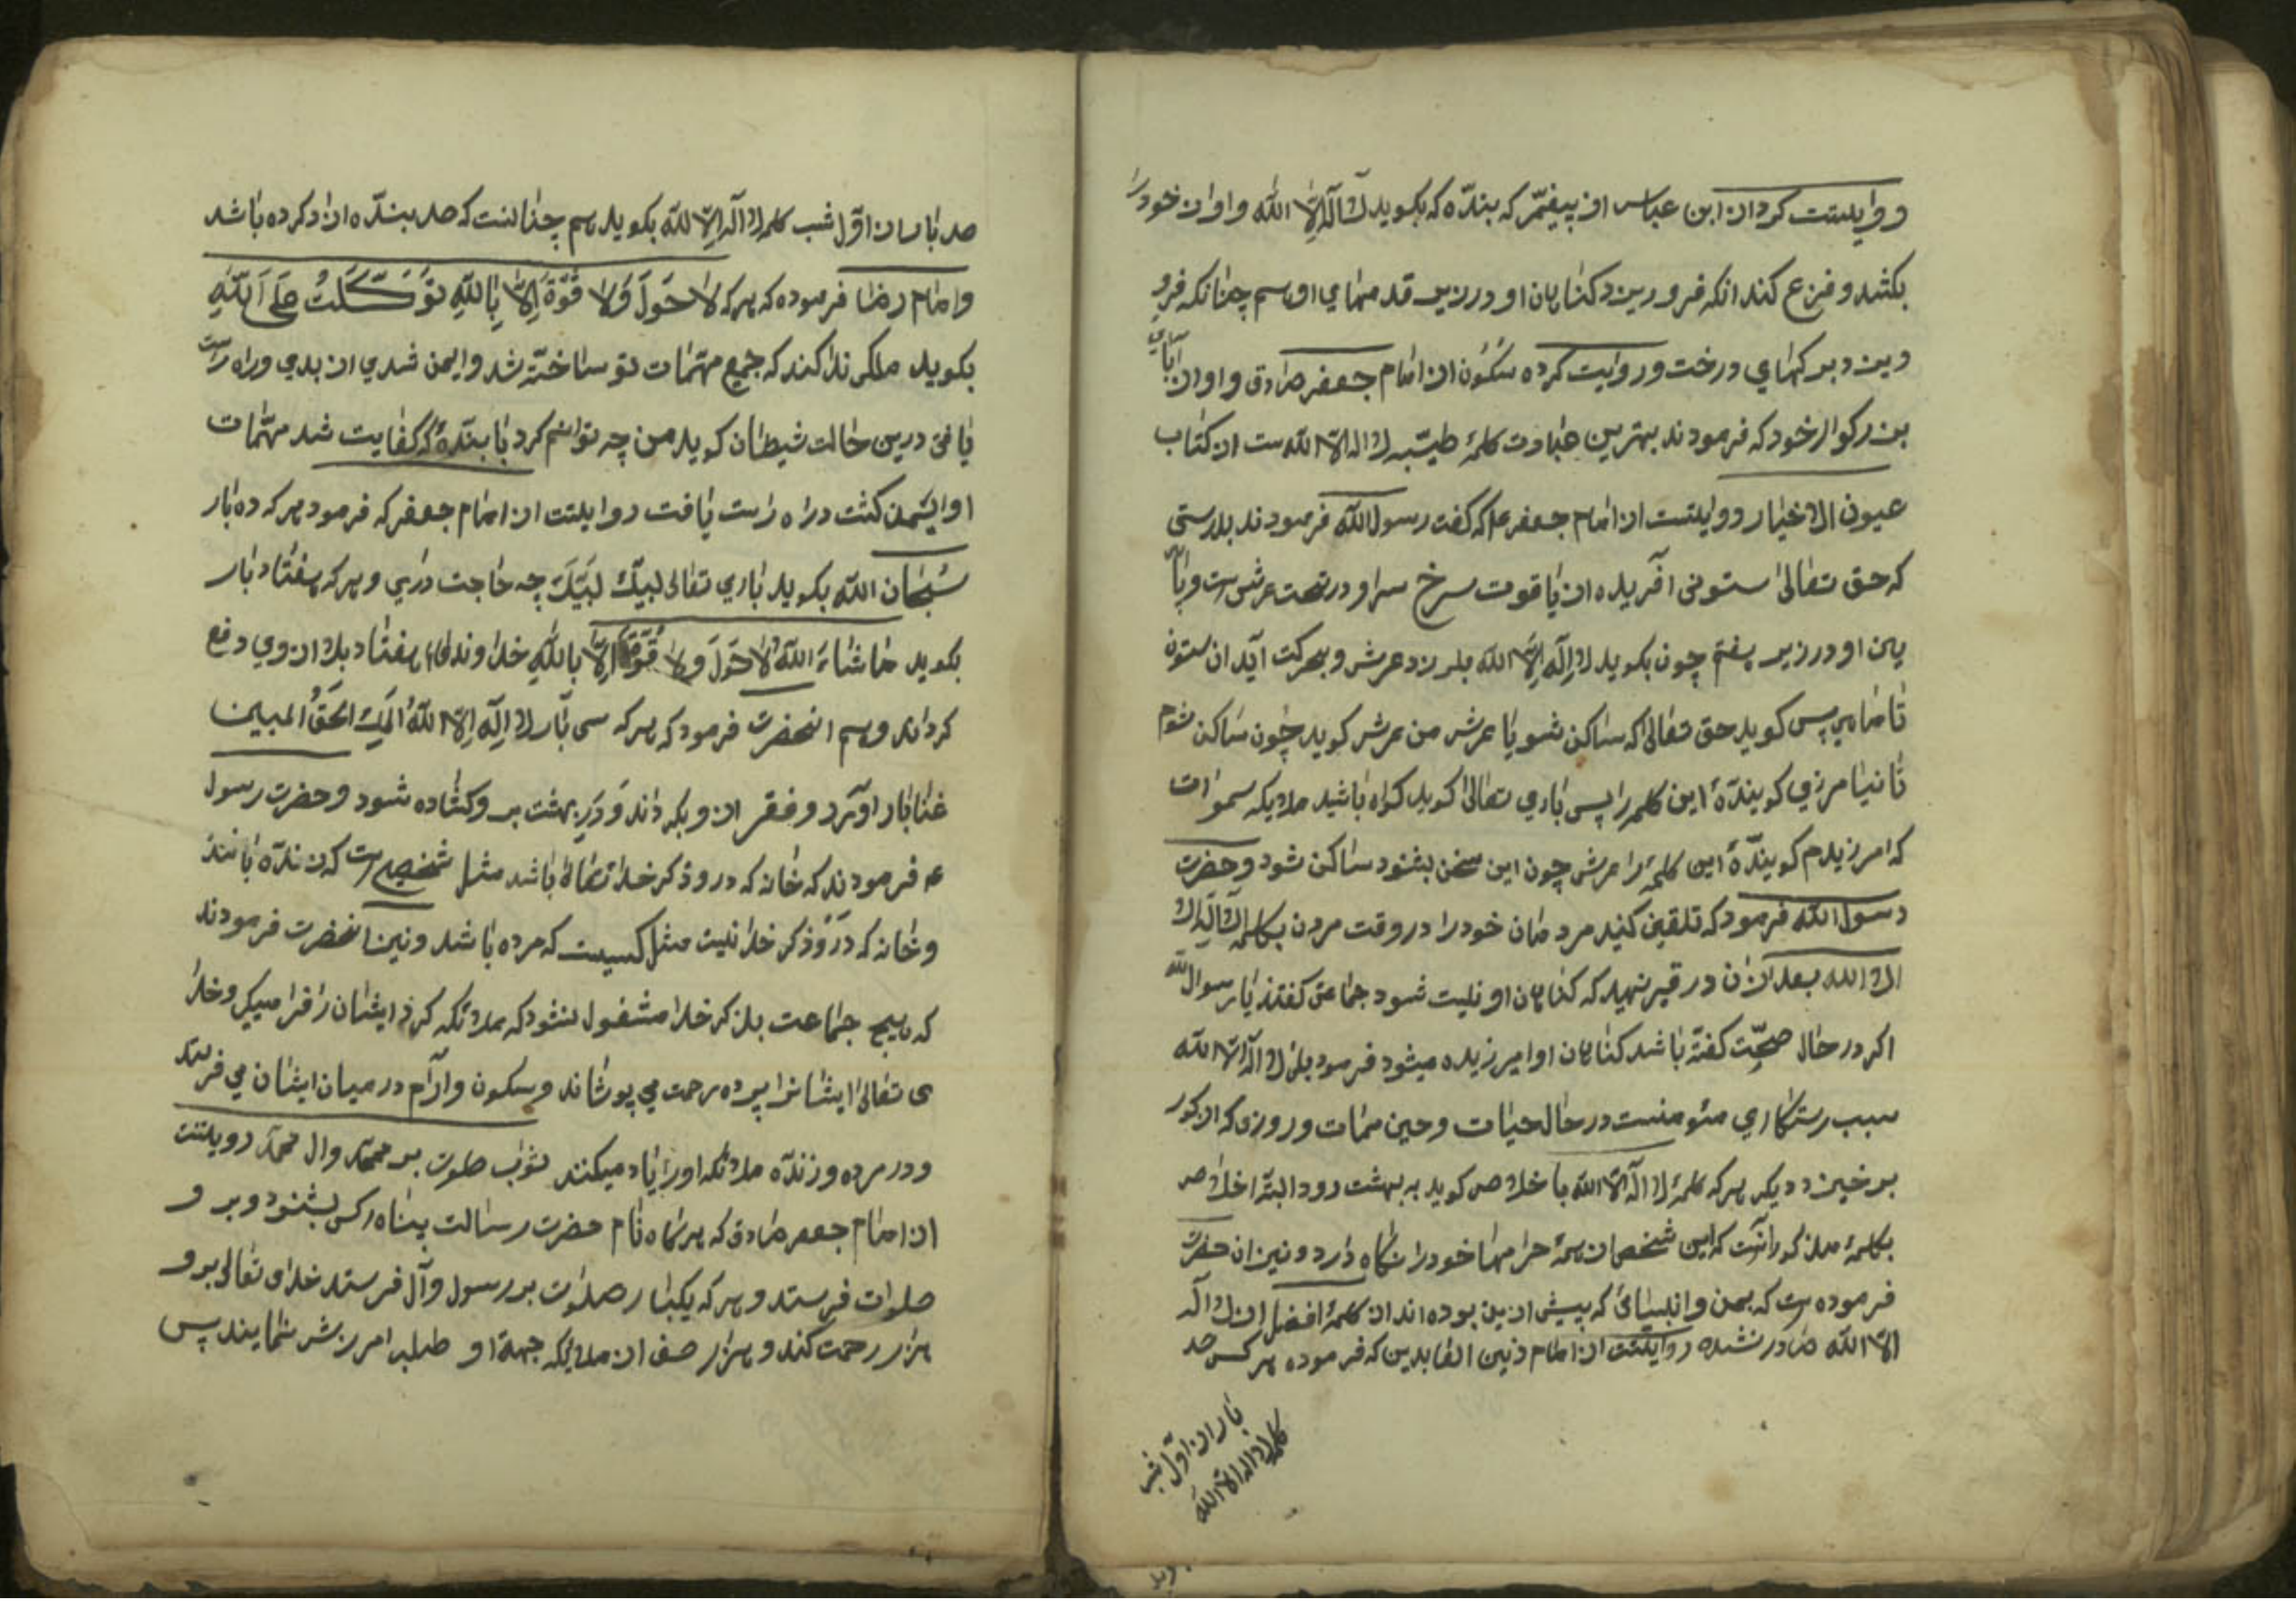 و روایتست کرد از ابن عباس از پیغمبر که بندّه که بکوید لا اله الا الله و اواز خود را
بکشد و فزع کند انکه فرو ریزد کناهان او در زیر قدمهای او هم چنانکه فرو
ریزد برکهای درخت و روایت کرده سکون از امام جعفر صادق و او از آبای
بزرکوار خود که فرمودند بهترین عبادت کلمهٔ طیّبه لا اله الا الله ست از کتاب
عیون الاخیار روایتست از امام جعفر که کفت رسول الله فرمودند بدرستی
که حق تعالی ستونی آفریده از یاقوت سرخ سر او در تحت عرش ست و پا
یان او در زیر هفتم چون بکوید لا اله الا الله بلرزد عرش و بحرکت آید آن ستون
تا ماهی پس کوید حق تعالی که ساکن شو یا عرش من عرش کوید چون ساکن شوم
تا نیامرزی کویندهٔ این کلمه را پس باری تعالی کوید کواه باشید ملایکه سموات
که امرزیدم کویندهٔ این کلمه را عرش چون این سخن بشنود ساکن شود و حضرت
رسول الله فرمود که تلقین کنید مردمان خود را در وقت مردن بکلمه لا اله
الا الله بعد از آن در قبر نهید که کناهان او نیست شود جماعتی کفتند یا رسول الله
اکر در حال صحّت کفته باشد کناهان او امرزیده میشود فرمود بلی لا اله الا الله
سبب رستکاری مئومنست در حال حیات و حین ممات و روزی که از کور
برخیزد دیکر هر که کلمهٔ لا اله الا الله با خلاص کوید به بهشت رود البته اخلاص
بکلمهٔ مذکور انست که این شخص از همهٔ حرامها خود را نکاه دارد و نیز ان حضرت
فرموده ست که بمن و انبیائی که پیش از من بوده اند از کلمهٔ افضل از لا اله
الا الله صادر نشده روایتست از امام زین العابدین که فرموده هر کس صد
بار از اوّل شب
کلمه لا اله الا الله
صد بار از اوّل شب کلمه لا اله الا الله بکوید هم چنانست که صد بندّه ازاد کرده باشد
و امام رضا فرموده که هر که لا حَولَ وَلا قُوّةَ اِلّا بِاللّهِ تَوَکَّلتُ عَلَی اللّهِ
بکوید ملکی ندا کند که جمیع مهمات تو ساخته شد و ایمن شدی از بدی و راه راست
یافی درین حالت شیطان کوید من چه توانم کرد با بندّهٔ که کفایت شد مهمّات
او و ایمن کشت و راه راست یافت روایتست از امام جعفر که فرمود هر که ده بار
سُبحان الله بکوید باری تعالی لبیک لَبَیّکَ چه حاجت داری و هر که هفتاد بار
بکوید ماشاءَ الله لا حَولَ ولا قُوّةَ اِلّا باللّهِ خداوند هفتاد بلا از وی دفع
کرداند و هم انحضرت فرمود که هر که سی بار لا اِلَه اِلّا اللهُ المَلِکُ الحَقُّ المبین
غنا بار اورد و فقر از و بکرداند وَ دَرِ بهشت بر و کشاده شود و حضرت رسول
ع فرمودند که خانه که در و ذکر خدا تعالی باشد مثل شخصیست که زندّه باشد
و خانه که دَرو ذکر خدا نیست مثل کسیست که مرده باشد و نیز انحضرت فرمودند
که هیچ جماعت بذکر خدا مشغول نشود که ملائکه کرد ایشان را فرا میکیرد و خدا
ی تعالی ایشانرا پرده رحمت می پوشاند و سکون و آرام در میان ایشان می فرستد
و در مرده و زندّه ملائکه او را یاد میکنند ثواب صلوت بر محمّد و ال محمّد روایتست
از امام جعفر صادق که هر کاه نام حضرت رسالت پناه را کس بشنود و بر و
صلوات فرستد و هر که یکبار صلوات بر رسول و آل فرستد خدای تعالی بر و
هزار رحمت کند و هزار صف از ملایکه جهة او طلب امرزش نمایند پس